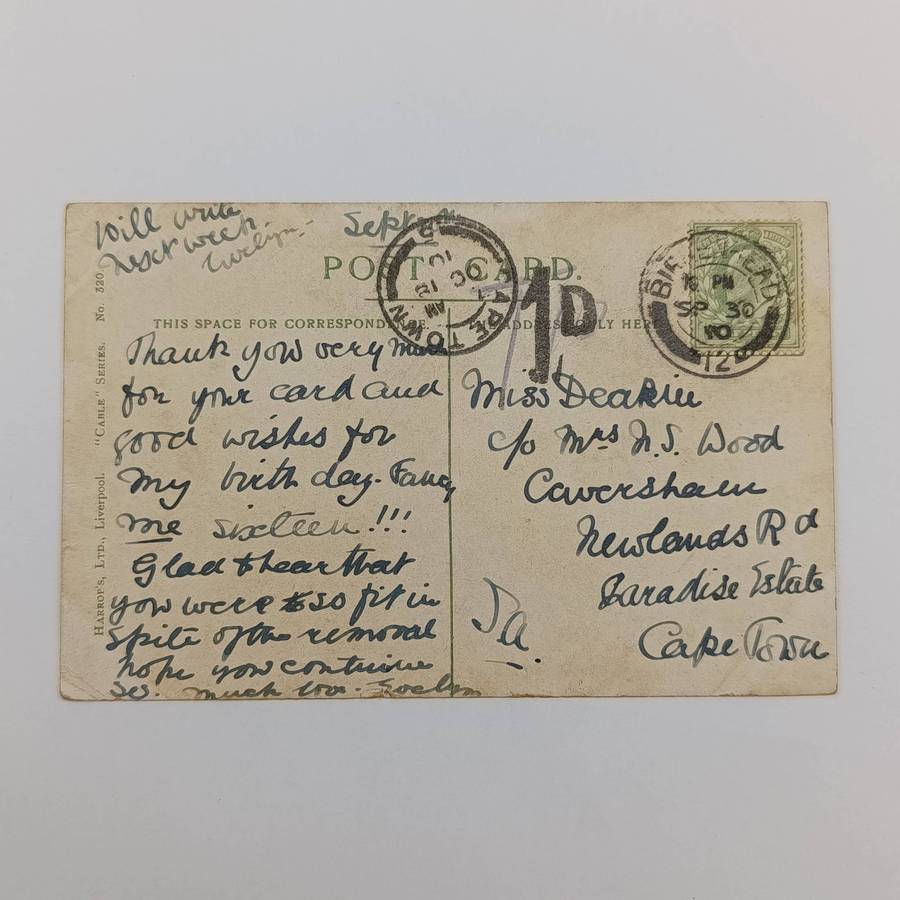 Will write
next week.
Evelyn.
Sept
POST CARD.
THIS SPACE FOR CORRESPONDENCE.
ADDRESS ONLY HERE
Thank you very much
for your card and
good wishes for
my birthday. Fancy
me sixteen!!!
Glad to hear that
you were so fit in
spite of the removal
hope you continue
so. much love. Evelyn
Miss Deakin
c/o Mrs N.S. Wood
Caversham
Newlands Rd
Paradise Estate
Cape Town
Sa.
1D
CAPE TOWN
OC 18
10
AM
BIRKENHEAD
PM
SP 30
10
HARROP'S, LTD., Liverpool. "CABLE" SERIES. No. 320